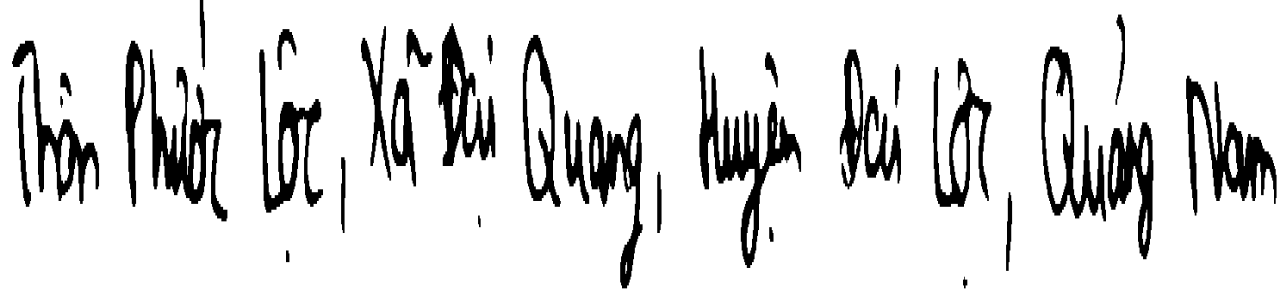 Thôn Phước Lộc, Xã Đại Quang, Huyện Đại Lộc, Quảng Nam